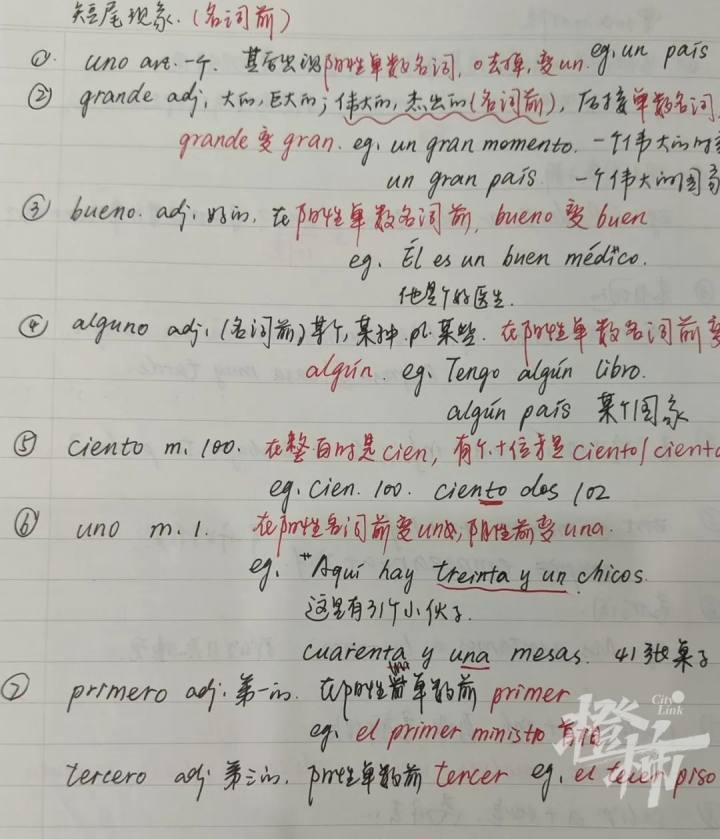 短尾现象.(名词前)
① uno art. 一个. 其后出现阳性单数名词, o去掉, 变un. eg, un país
② grande adj, 大的, 巨大的; 伟大的, 杰出的(名词前), 后接单数名词,
grande 变 gran. eg, un gran momento. 一个伟大的时
un gran país 一个伟大的国家
③ bueno. adj, 好的, 在阳性单数名词前, bueno 变 buen
eg, Él es un buen médico.
他是个好医生.
④ alguno adj, (名词前)某个, 某种. pl. 某些. 在阳性单数名词前变
algún. eg, Tengo algún libro.
algún país 某个国家
⑤ ciento m. 100. 在整百时是cien, 有个.十位才是ciento/ciento
eg. cien. 100. ciento dos 102
⑥ uno m. 1. 在阳性名词前变un, 阴性前变una.
eg, "Aquí hay treinta y un chicos.
这里有31个小伙子.
cuarenta y una mesas. 41张桌子
⑦ primero adj. 第一的. 在阳性单数前 primer
eg, el primer ministro 首相
tercero adj. 第三的, 阳性单数前 tercer eg, el tecer piso
City Link
橙柿